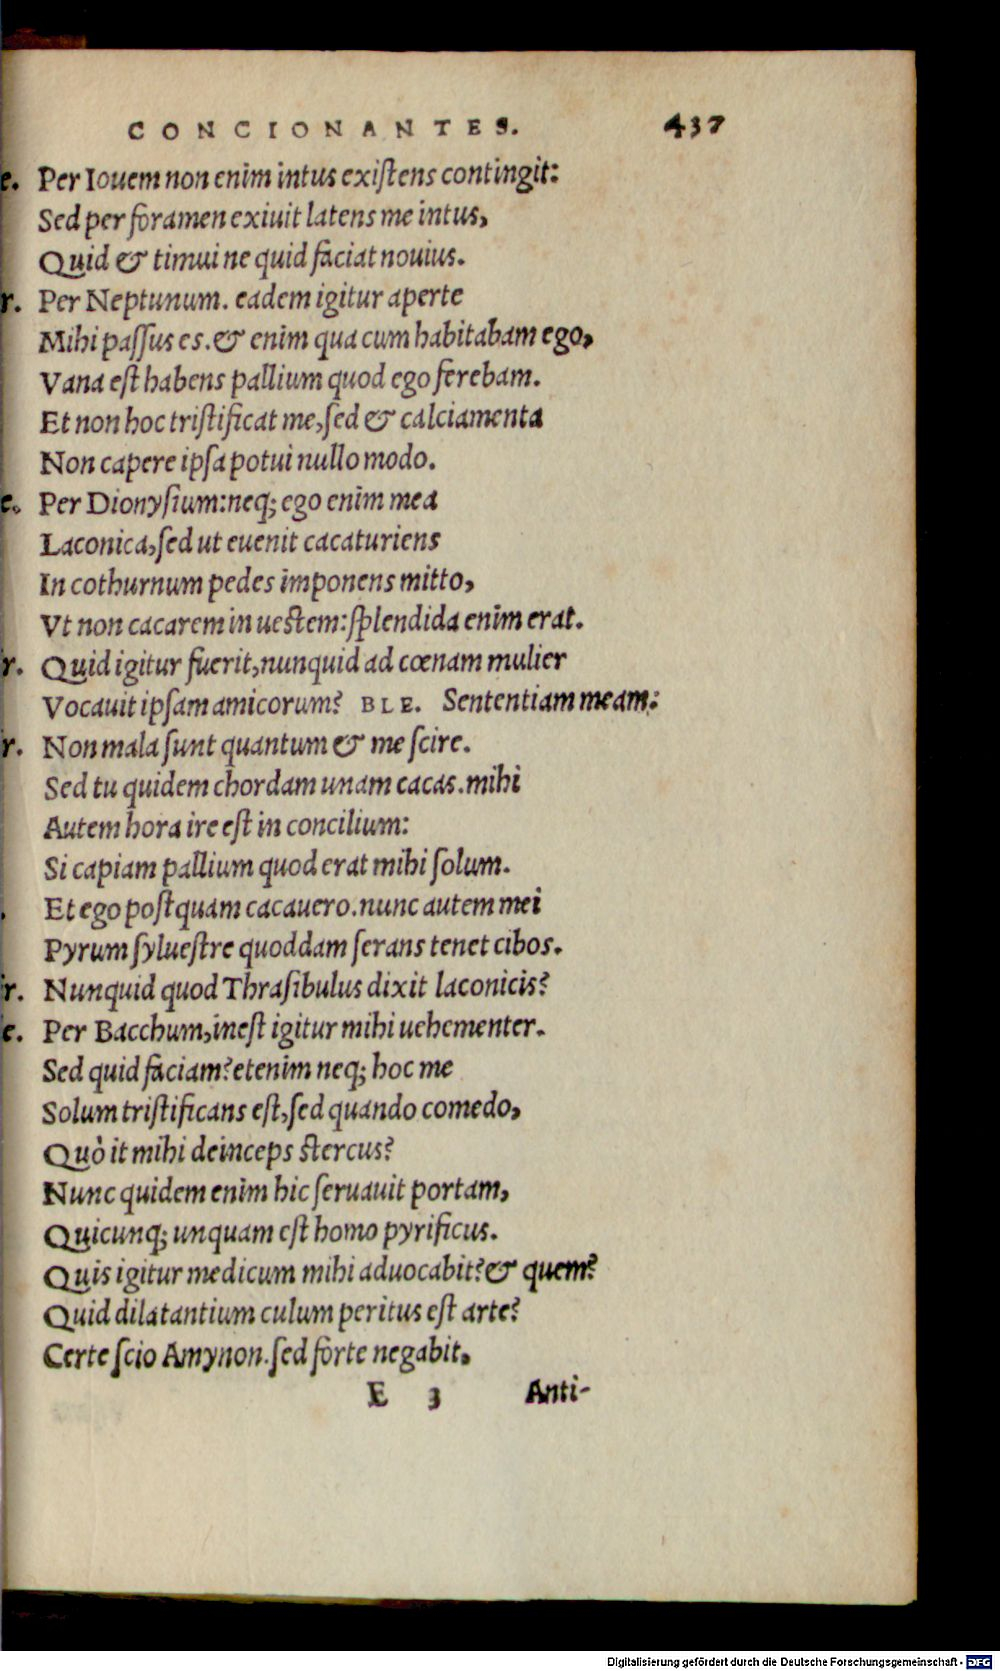 CONCIONANTES. 437
e. Per Iouem non enim intus existens contingit:
Sed per foramen exiuit latens me intus,
Quid & timui ne quid faciat nouius.
r. Per Neptunum. eadem igitur aperte
Mihi passus es. & enim qua cum habitabam ego,
Vana est habens pallium quod ego ferebam.
Et non hoc tristificat me, sed & calciamenta
Non capere ipsa potui nullo modo.
e. Per Dionysium: neq; ego enim mea
Laconica, sed ut euenit cacaturiens
In cothurnum pedes imponens mitto,
Vt non cacarem in uestem: splendida enim erat.
r. Quid igitur fuerit, nunquid ad cœnam mulier
Vocauit ipsam amicorum? BLE. Sententiam meam:
r. Non mala sunt quantum & me scire.
Sed tu quidem chordam unam cacas. mihi
Autem hora ire est in concilium:
Si capiam pallium quod erat mihi solum.
. Et ego postquam cacauero. nunc autem mei
Pyrum syluestre quoddam serans tenet cibos.
r. Nunquid quod Thrasibulus dixit laconicis?
e. Per Bacchum, inest igitur mihi uehementer.
Sed quid faciam? etenim neq; hoc me
Solum tristificans est, sed quando comedo,
Quò it mihi deinceps stercus?
Nunc quidem enim hic seruauit portam,
Quicunq; unquam est homo pyrificus.
Quis igitur medicum mihi aduocabit? & quem?
Quid dilatantium culum peritus est arte?
Certe scio Amynon. sed forte negabit,
E 3 Anti-
Digitalisierung gefördert durch die Deutsche Forschungsgemeinschaft - DFG